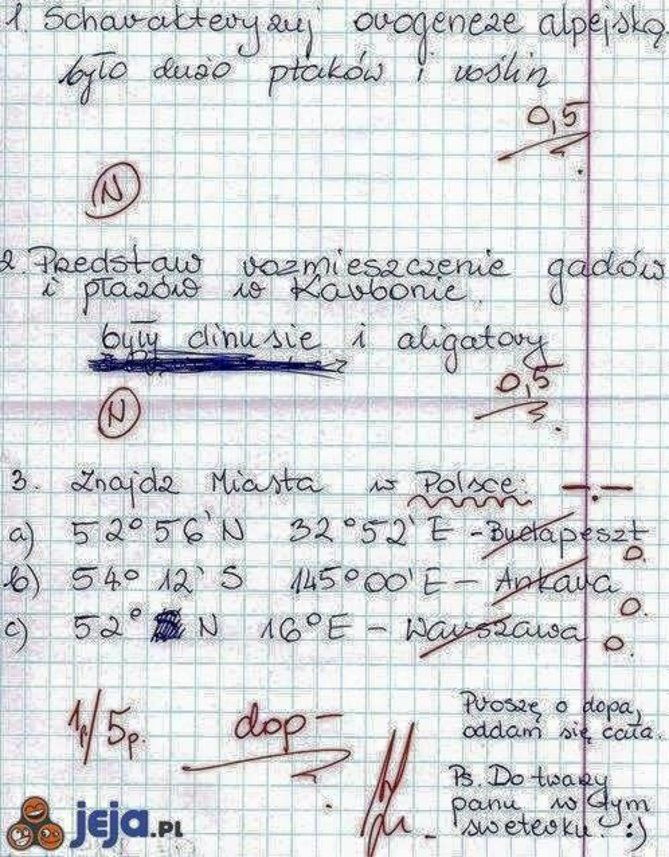 1. Scharakteryzuj orogeneze alpejską.
było dużo ptaków i roślin
0,5
N
2. Przedstaw rozmieszczenie gadów
i płazów w Karbonie.
były dinusie i aligatory
0,5
N
3. Znajdź Miasta w Polsce: -.-
a) 52° 56' N 32° 52' E - Budapeszt
0.
b) 54° 12' S 145° 00' E - Ankara
0.
c) 52° N 16° E - Warszawa
0.
1p/5p.
dop-
Proszę o dopa,
oddam się cała.
Ps. Do twarzy
panu w tym
sweterku. :)
jeja.PL